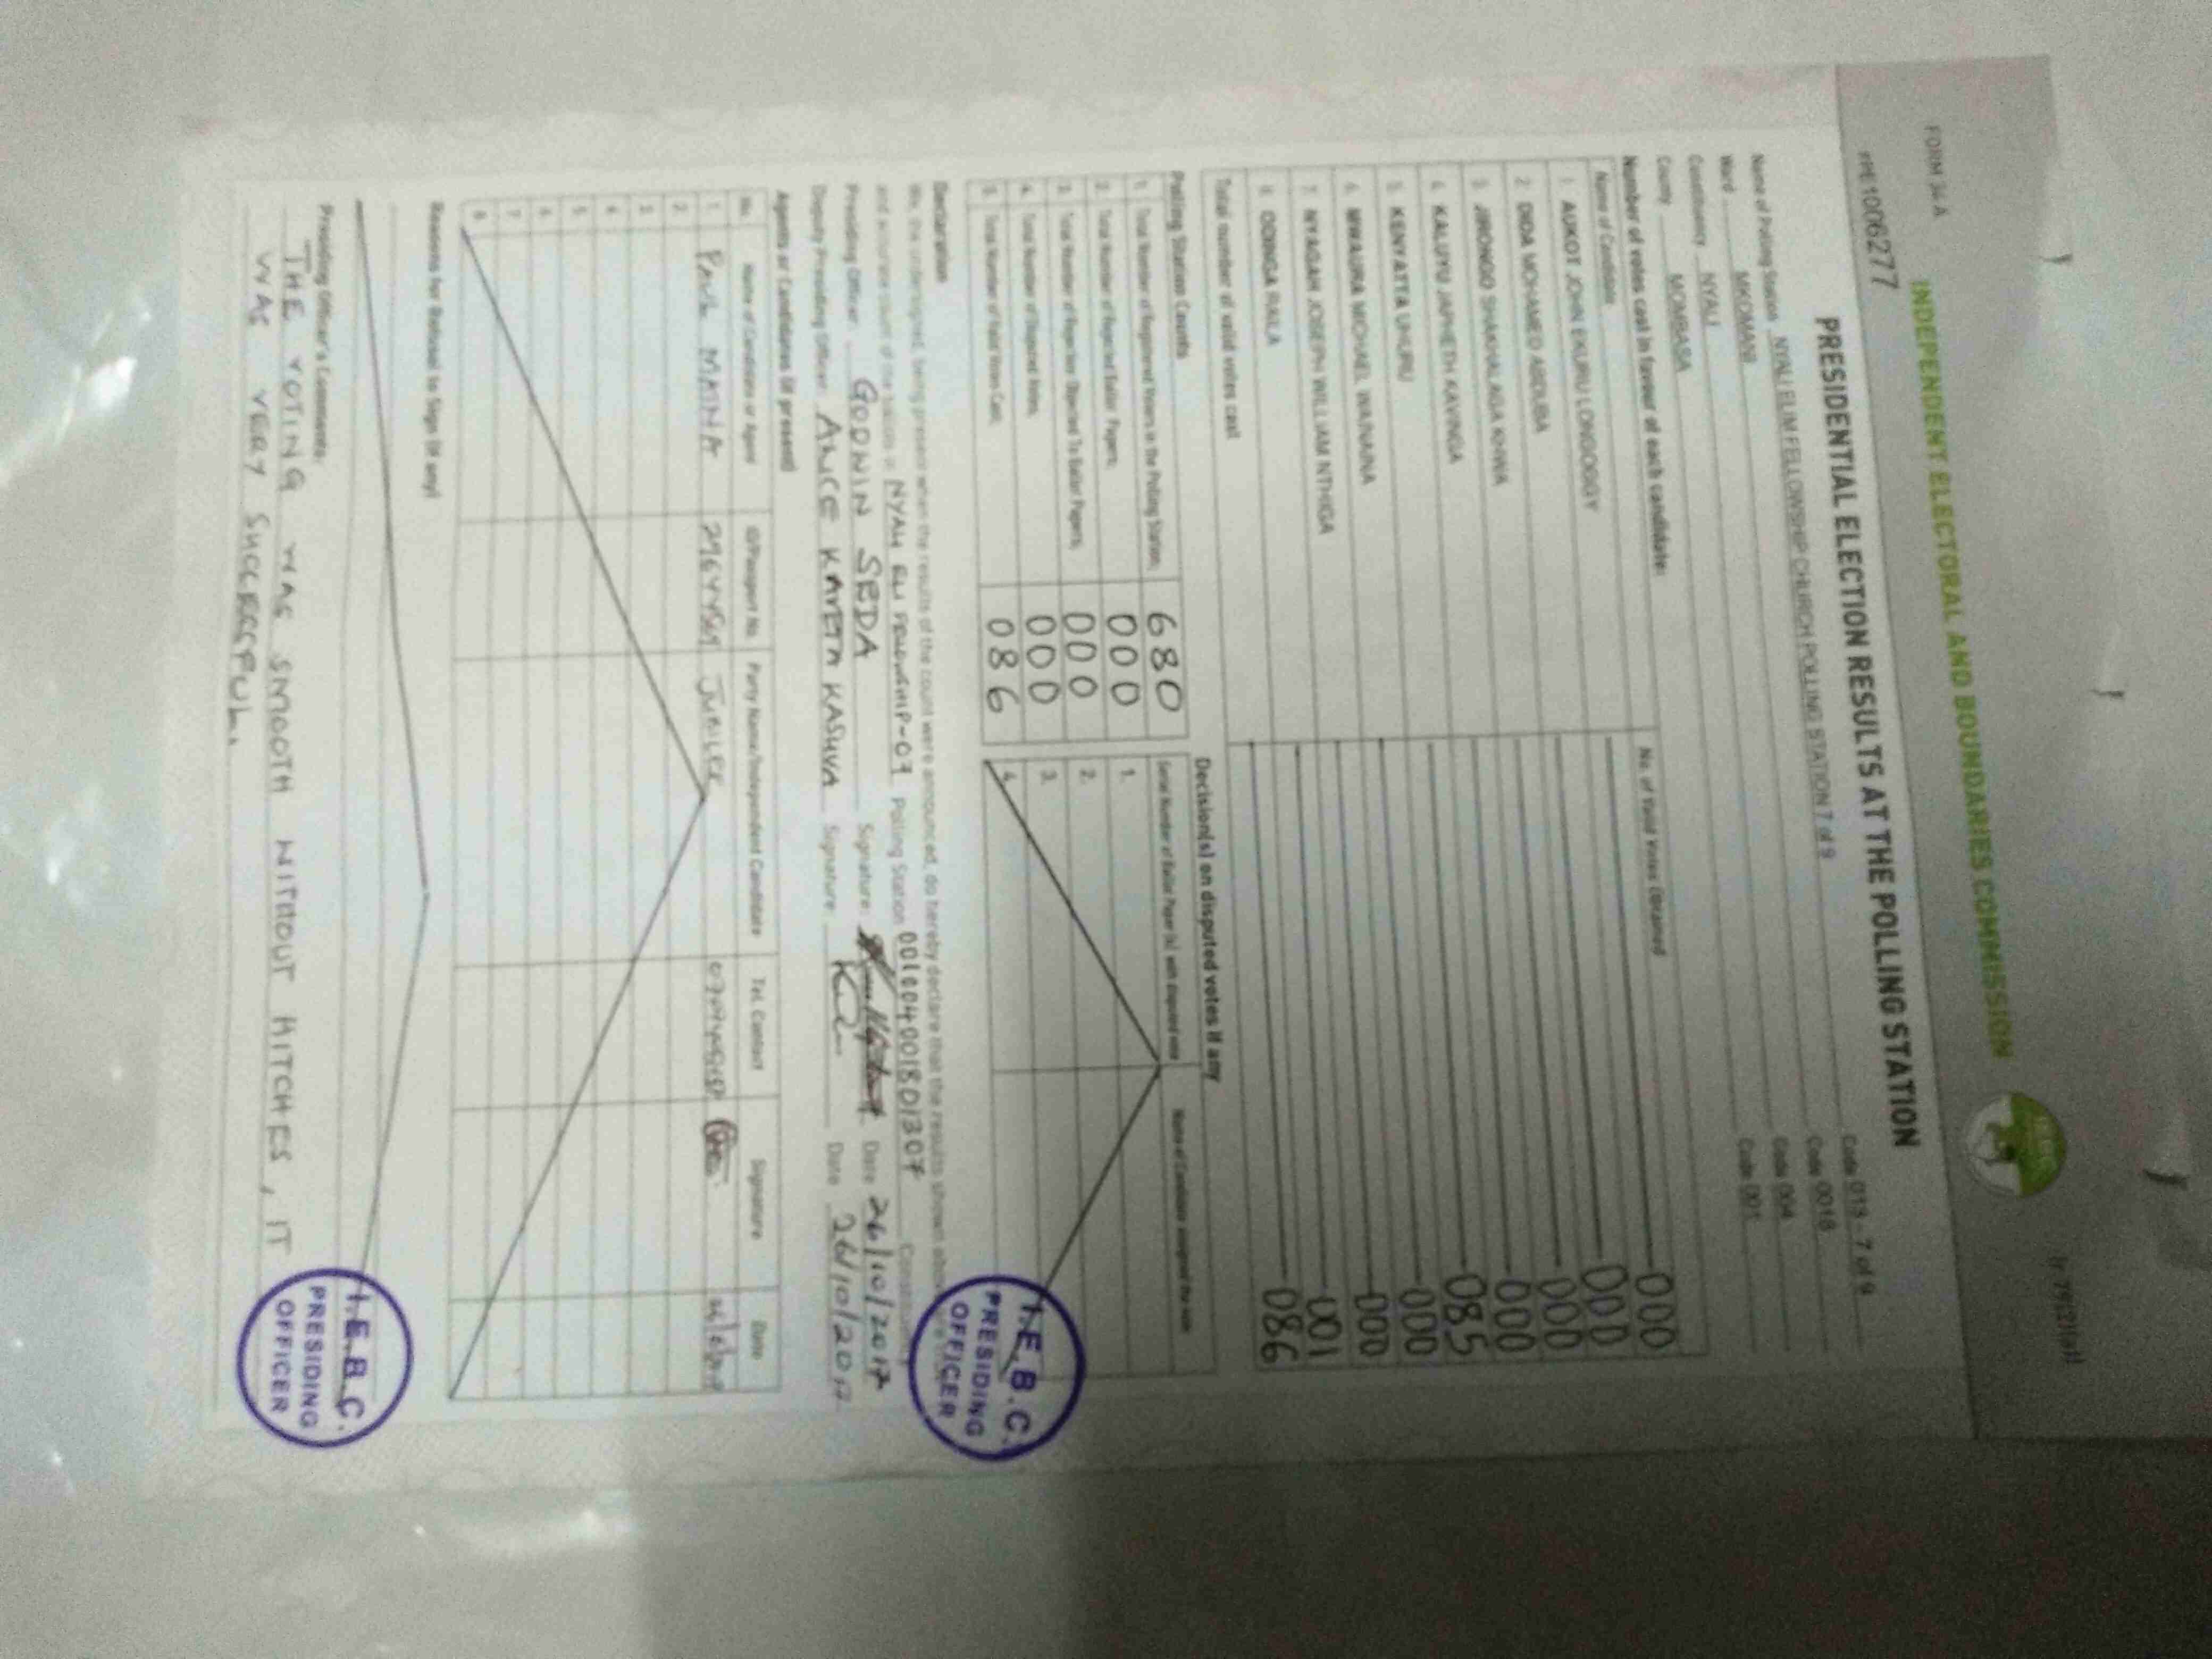 FORM 34 A
INDEPENDENT ELECTORAL AND BOUNDARIES COMMISSION
PRE1006277
PRESIDENTIAL ELECTION RESULTS AT THE POLLING STATION
Name of Polling Station NYALI ELIM FELLOWSHIP CHURCH POLLING STATION 7 of 9 Code 013 - 7 of 9
Ward MKOMANI Code 0018
Constituency NYALI Code 004
County MOMBASA Code 001
Number of votes cast in favour of each candidate:
Name of Candidate No. of Valid Votes Obtained
1. AUKOT JOHN EKURU LONGOGGY 000
2. DIDA MOHAMED ABDUBA 000
3. JIRONGO SHAKHALAGA KHWA 000
4. KALUYU JAPHETH KAVINGA 000
5. KENYATTA UHURU 085
6. MWAURA MICHAEL WAINAINA 000
7. NYAGAH JOSEPH WILLIAM NTHIGA 000
8. ODINGA RAILA 001
Total number of valid votes cast 086
Polling Station Counts
1. Total Number of Registered Voters in the Polling Station; 680
2. Total Number of Rejected Ballot Papers; 000
3. Total Number of Rejection Objected To Ballot Papers; 000
4. Total Number of Disputed Votes; 000
5. Total Number of Valid Votes Cast; 086
Decision(s) on disputed votes if any
Serial Number of Ballot Paper (s) with disputed vote Name of Candidate assigned the vote
1.
2.
3.
4.
Declaration
We, the undersigned, being present when the results of the count were announced, do hereby declare that the results shown above
and accurate count of the ballots in Polling Station 001004001801307
Presiding Officer GODWIN SEDA Signature: Date 26/10/2017
Deputy Presiding Officer KASHVA Signature: Date 26/10/2017
Agents or Candidates (if present)
No. Name of Candidate or Agent ID/Passport No. Party Name/Independent Candidate Tel. Contact Signature Date
1. PAUL MAINA JUBILEE
2.
3.
4.
5.
6.
7.
8.
Reasons for Refusal to Sign (if any)
Presiding Officer's Comments:
THE VOTING WAS SMOOTH WITHOUT HITCHES, IT
WAS VERY SUCCESSFUL.
I.E.B.C.
PRESIDING
OFFICER
I.E.B.C.
PRESIDING
OFFICER